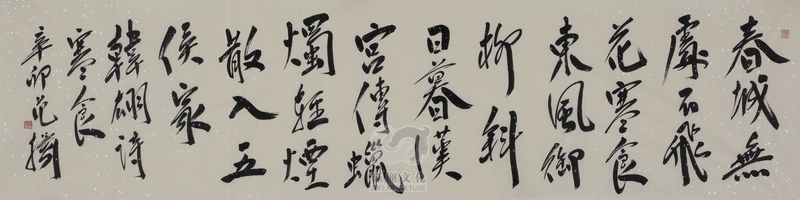 春城無
處不飛
花寒食
東風御
柳斜
日暮漢
宮傳蠟
燭輕煙
散入五
侯家
韓翃詩
寒食
辛卯范